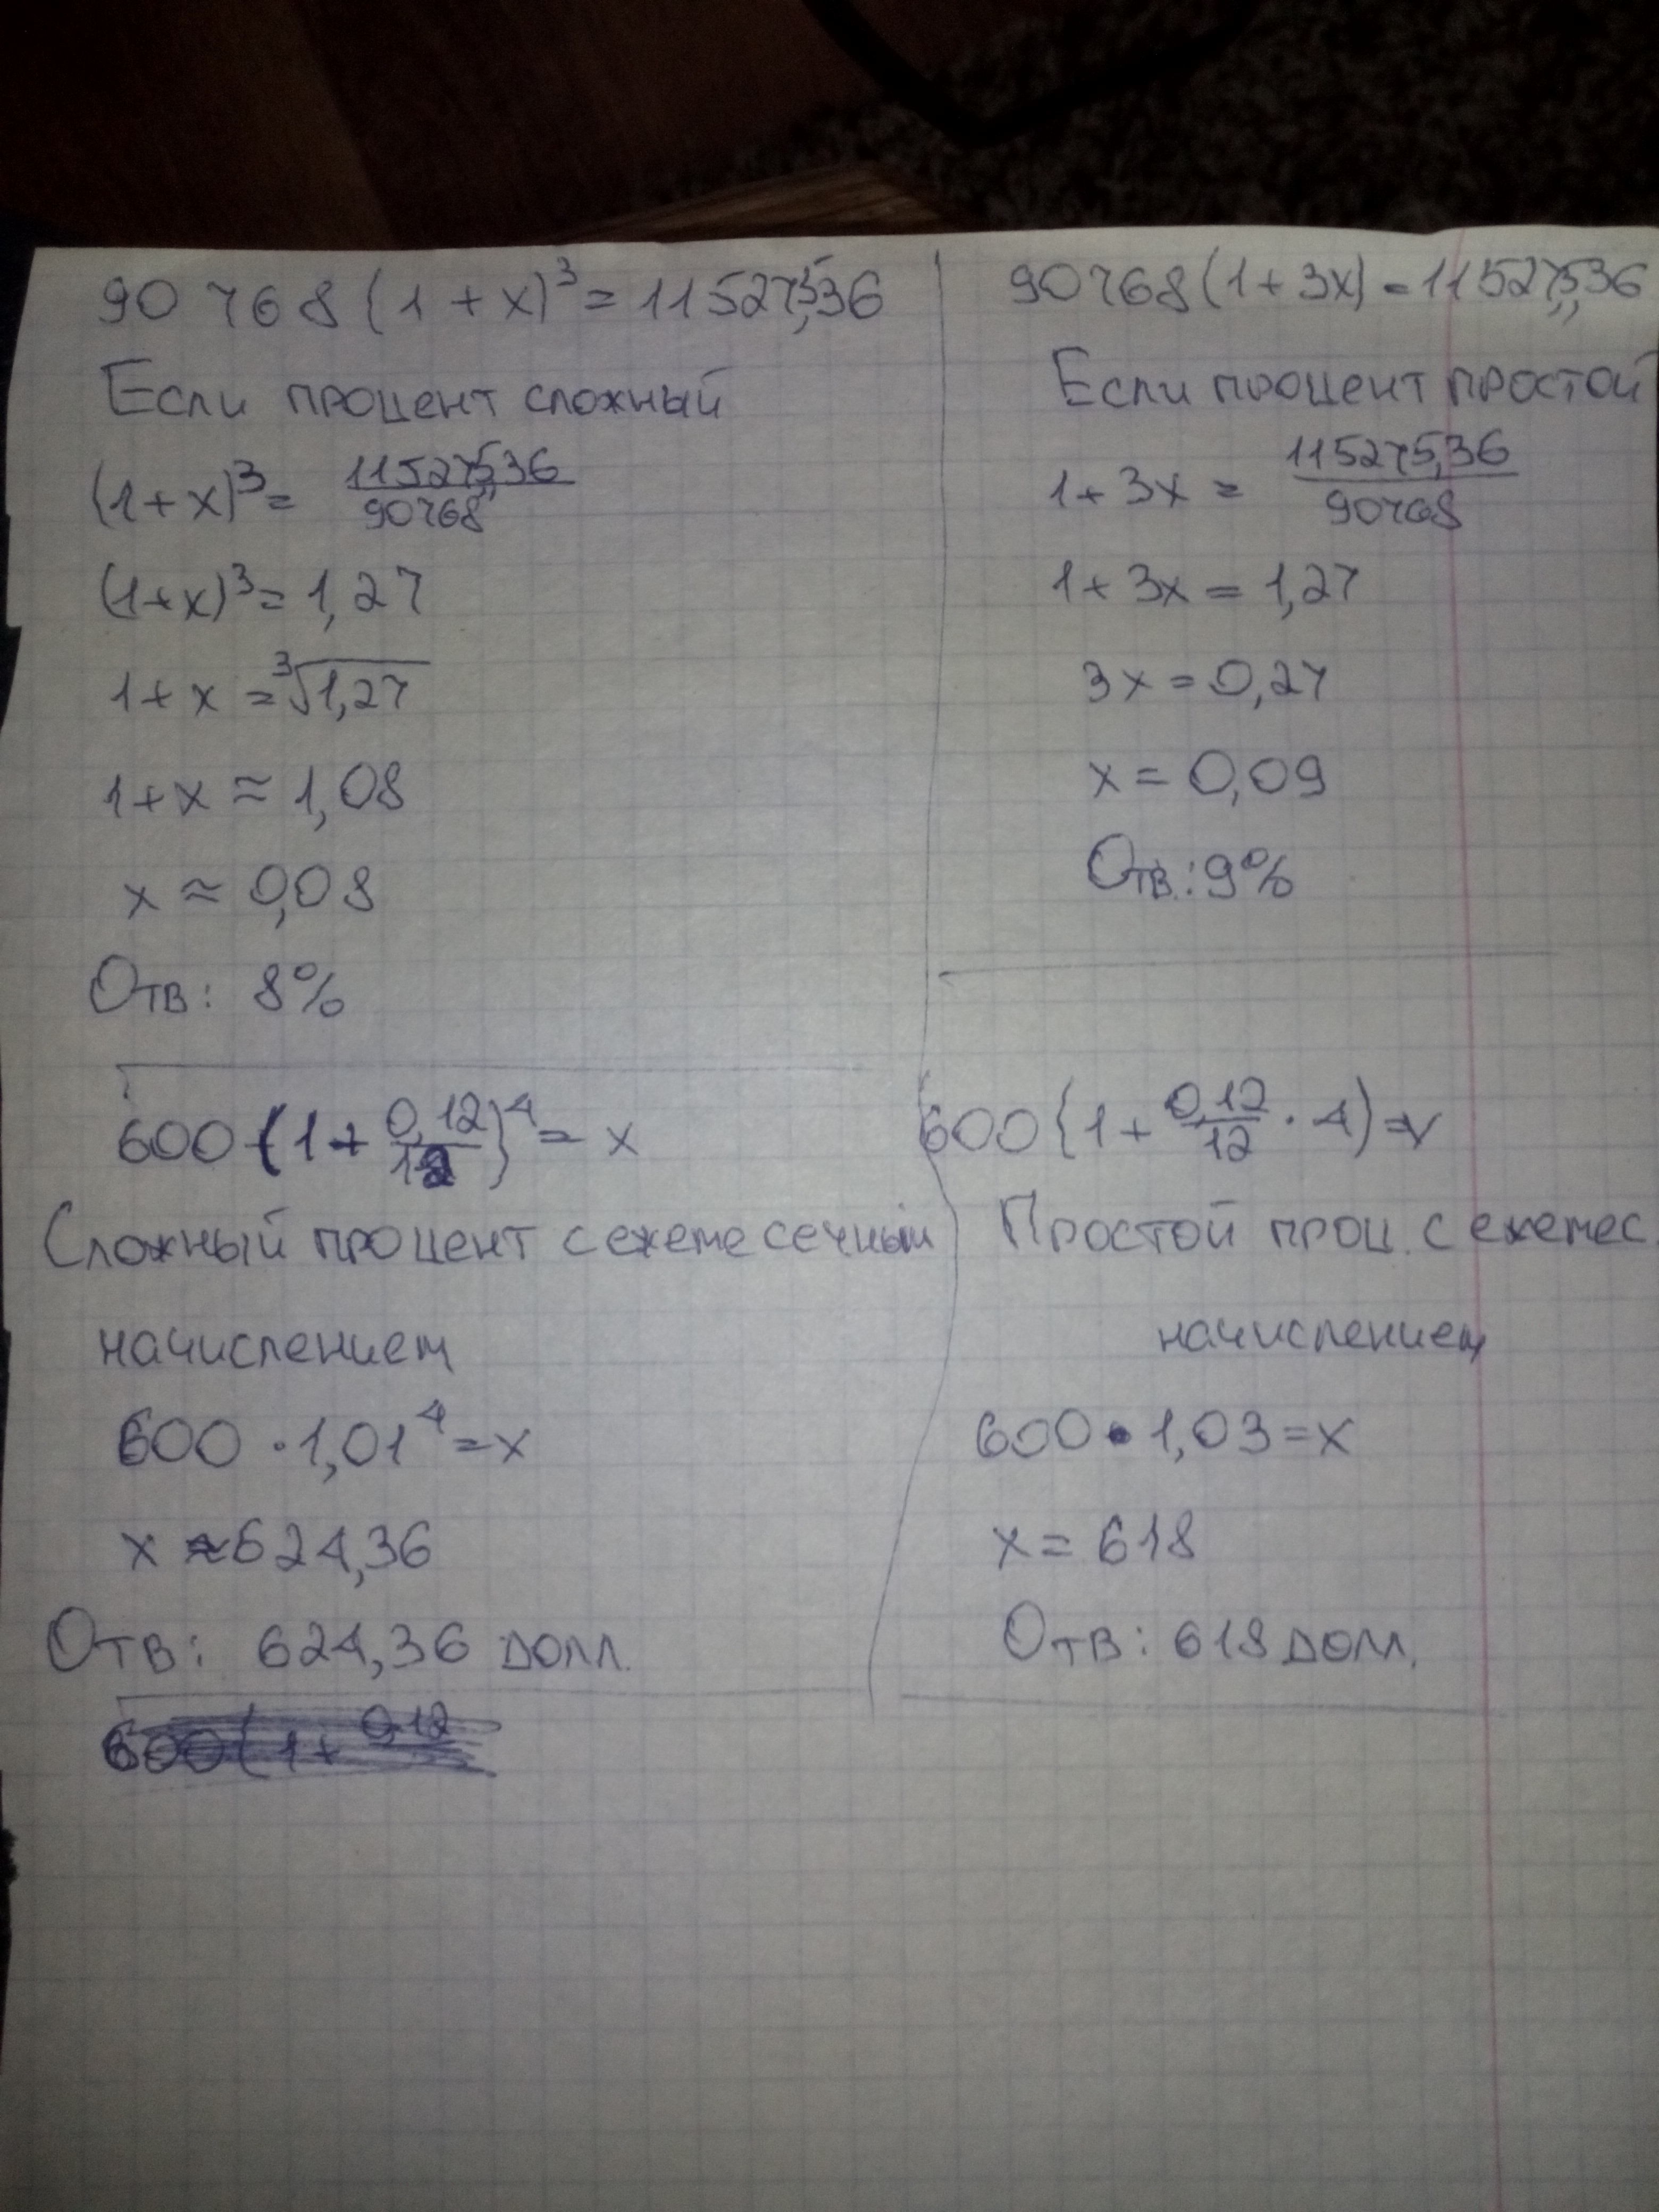 90 768 (1 + x)³ = 115275,36
Если процент сложный
(1 + x)³ = 115275,36 / 90768
(1+x)³ = 1,27
1 + x = ³√1,27
1+x ≈ 1,08
x ≈ 0,08
Отв: 8%
90768 (1 + 3x) = 115275,36
Если процент простой
1 + 3x = 115275,36 / 90768
1 + 3x = 1,27
3x = 0,27
x = 0,09
Отв.: 9%
600 (1 + 0,12 / 12)⁴ = x
Сложный процент с ежемесечным
начислением
600 · 1,01⁴ = x
x ≈ 624,36
Отв: 624,36 долл.
600 (1 + 0,12
600 (1 + 0,12 / 12 · 4) = x
Простой проц. с ежемес.
начислением
600 · 1,03 = x
x = 618
Отв: 618 долл.